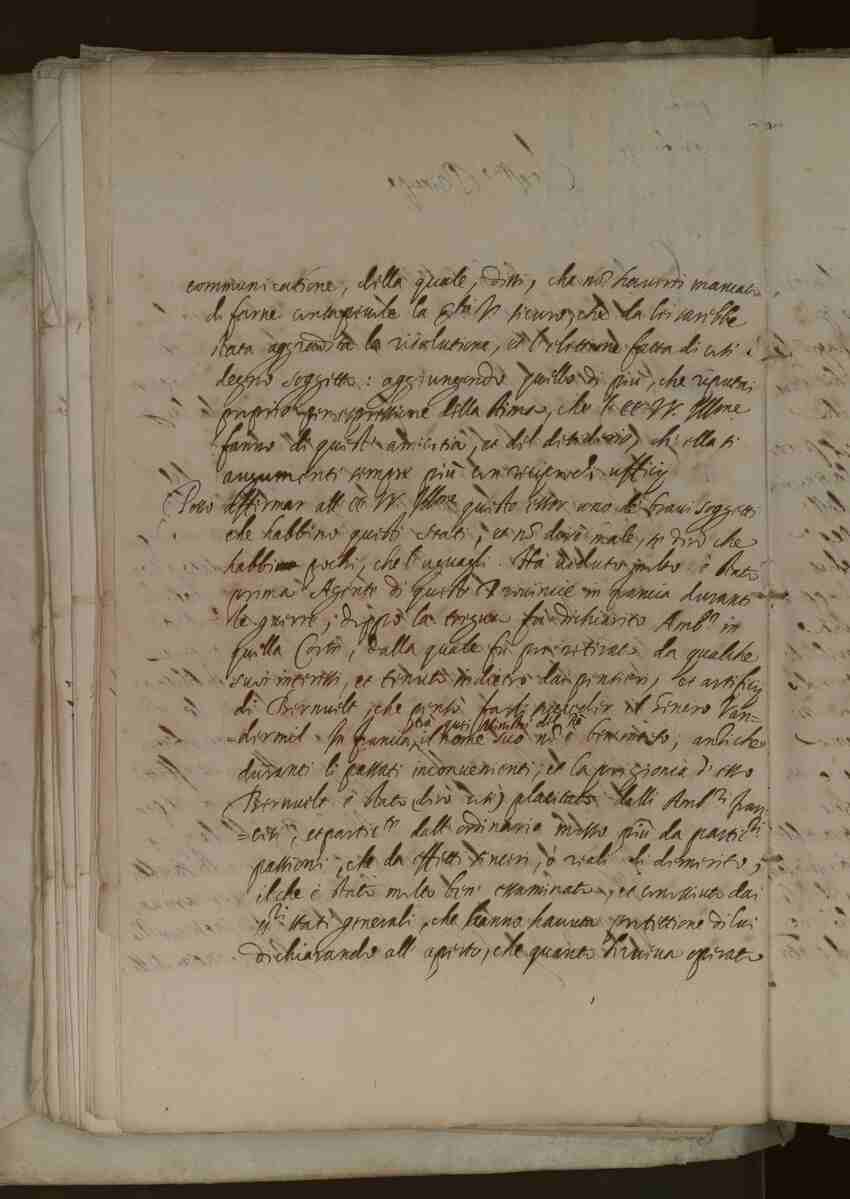 communicatione, della quale, dissi, che nõ haverei mancato
di farne consapevole la Ser.tà V. sicuro, che da lei sarebbe
stata aggradita la risolutione, et l'elettione fatta di così
degno soggetto: aggiungendo quello di più, che riputai
proprio per espressione della stima, che le EE. VV. Ill.me
fanno di questa amicitia, et del desiderio, ch'ella si
augumenti sempre più con reciprochi ufficij
Posso affirmar all'EE. VV. Ill.me questo esser uno de bravi soggetti
che habbino questi stati, et nõ dirò male, se dirò che
habbino pochi, che l'uguagli. Ha veduto molto è stato
prima Agente di queste Provincie in Francia durante
le guerre; doppo la tregua fu dichiarito Amb.r in
quella Corte, dalla quale fu poi retirato da qualche
suoi interessi, et tenuto indietro dai pensieri, et artificij
di Bernvelt, che pensò farli preceder il Genero Van=
=dermil. In Francia, il nome suo nõ è ben visto, anzi che
duranti li passati inconvenienti, et la prigionia d'esso
Bernvelt è stato (dirò così) placitato dalli Amb.ri fran
=cesi, et partic.te dall'ordinario mosso più da partic.ri
passioni, che da effetti sinceri, ò reali di demerito;
il che è stato molto ben essaminato, et conosciuto dai
SS.ri stati generali, che hanno havuta protettione di lui
dichiarando all'aperto, che quanto haveva operato